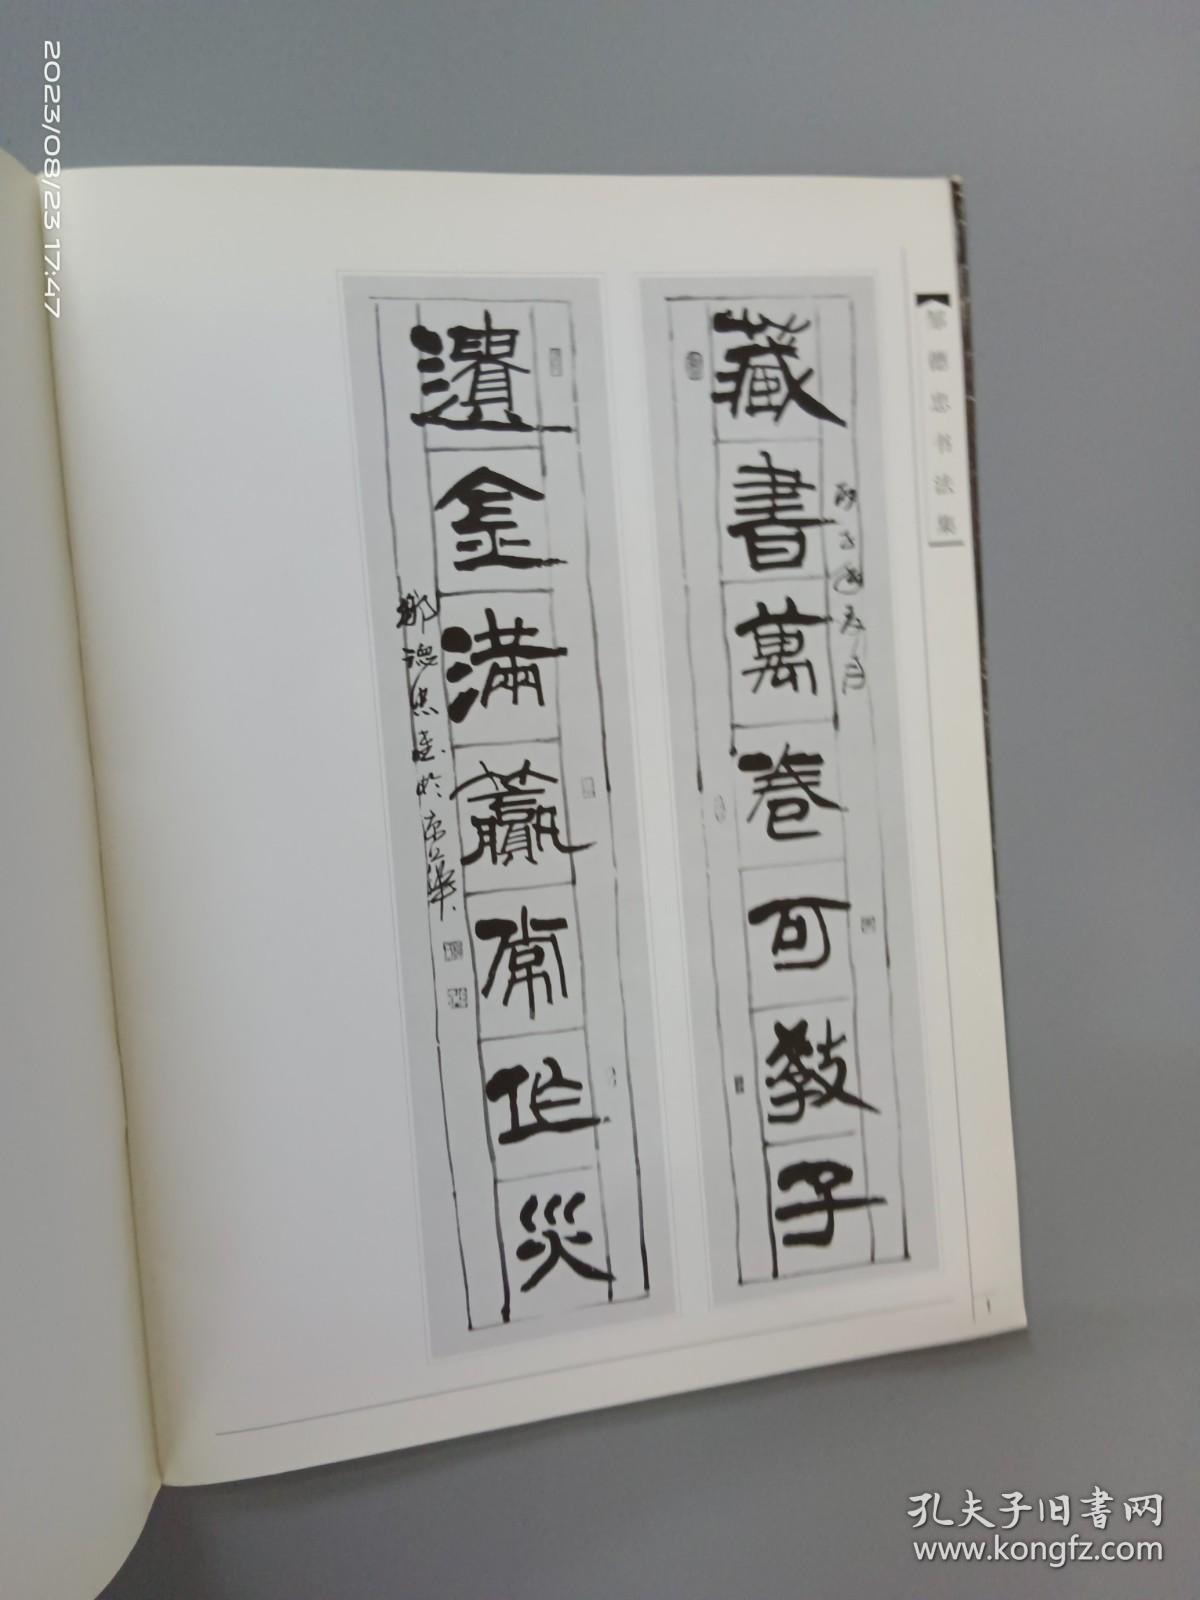 2023/08/23 17:47
邹德忠书法集
藏書萬卷可教子
遺金滿籯常作災
鄒德忠書於京華
1
孔夫子旧书网
www.kongfz.com